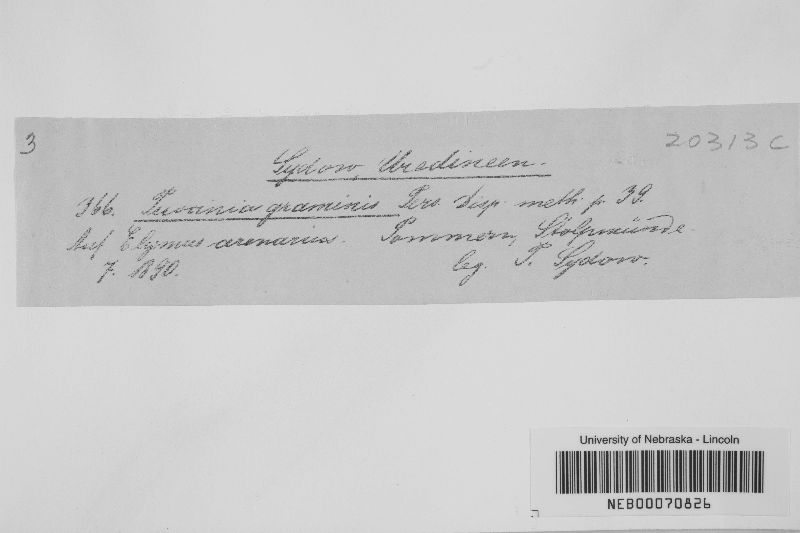 3
20313C
Sydow, Uredineen.
366. Puccinia graminis Pers. Disp. meth. p. 39.
Auf Elymus arenarius. Pommern, Stolpmünde.
7. 1890. leg. P. Sydow.
University of Nebraska - Lincoln
NEB00070826